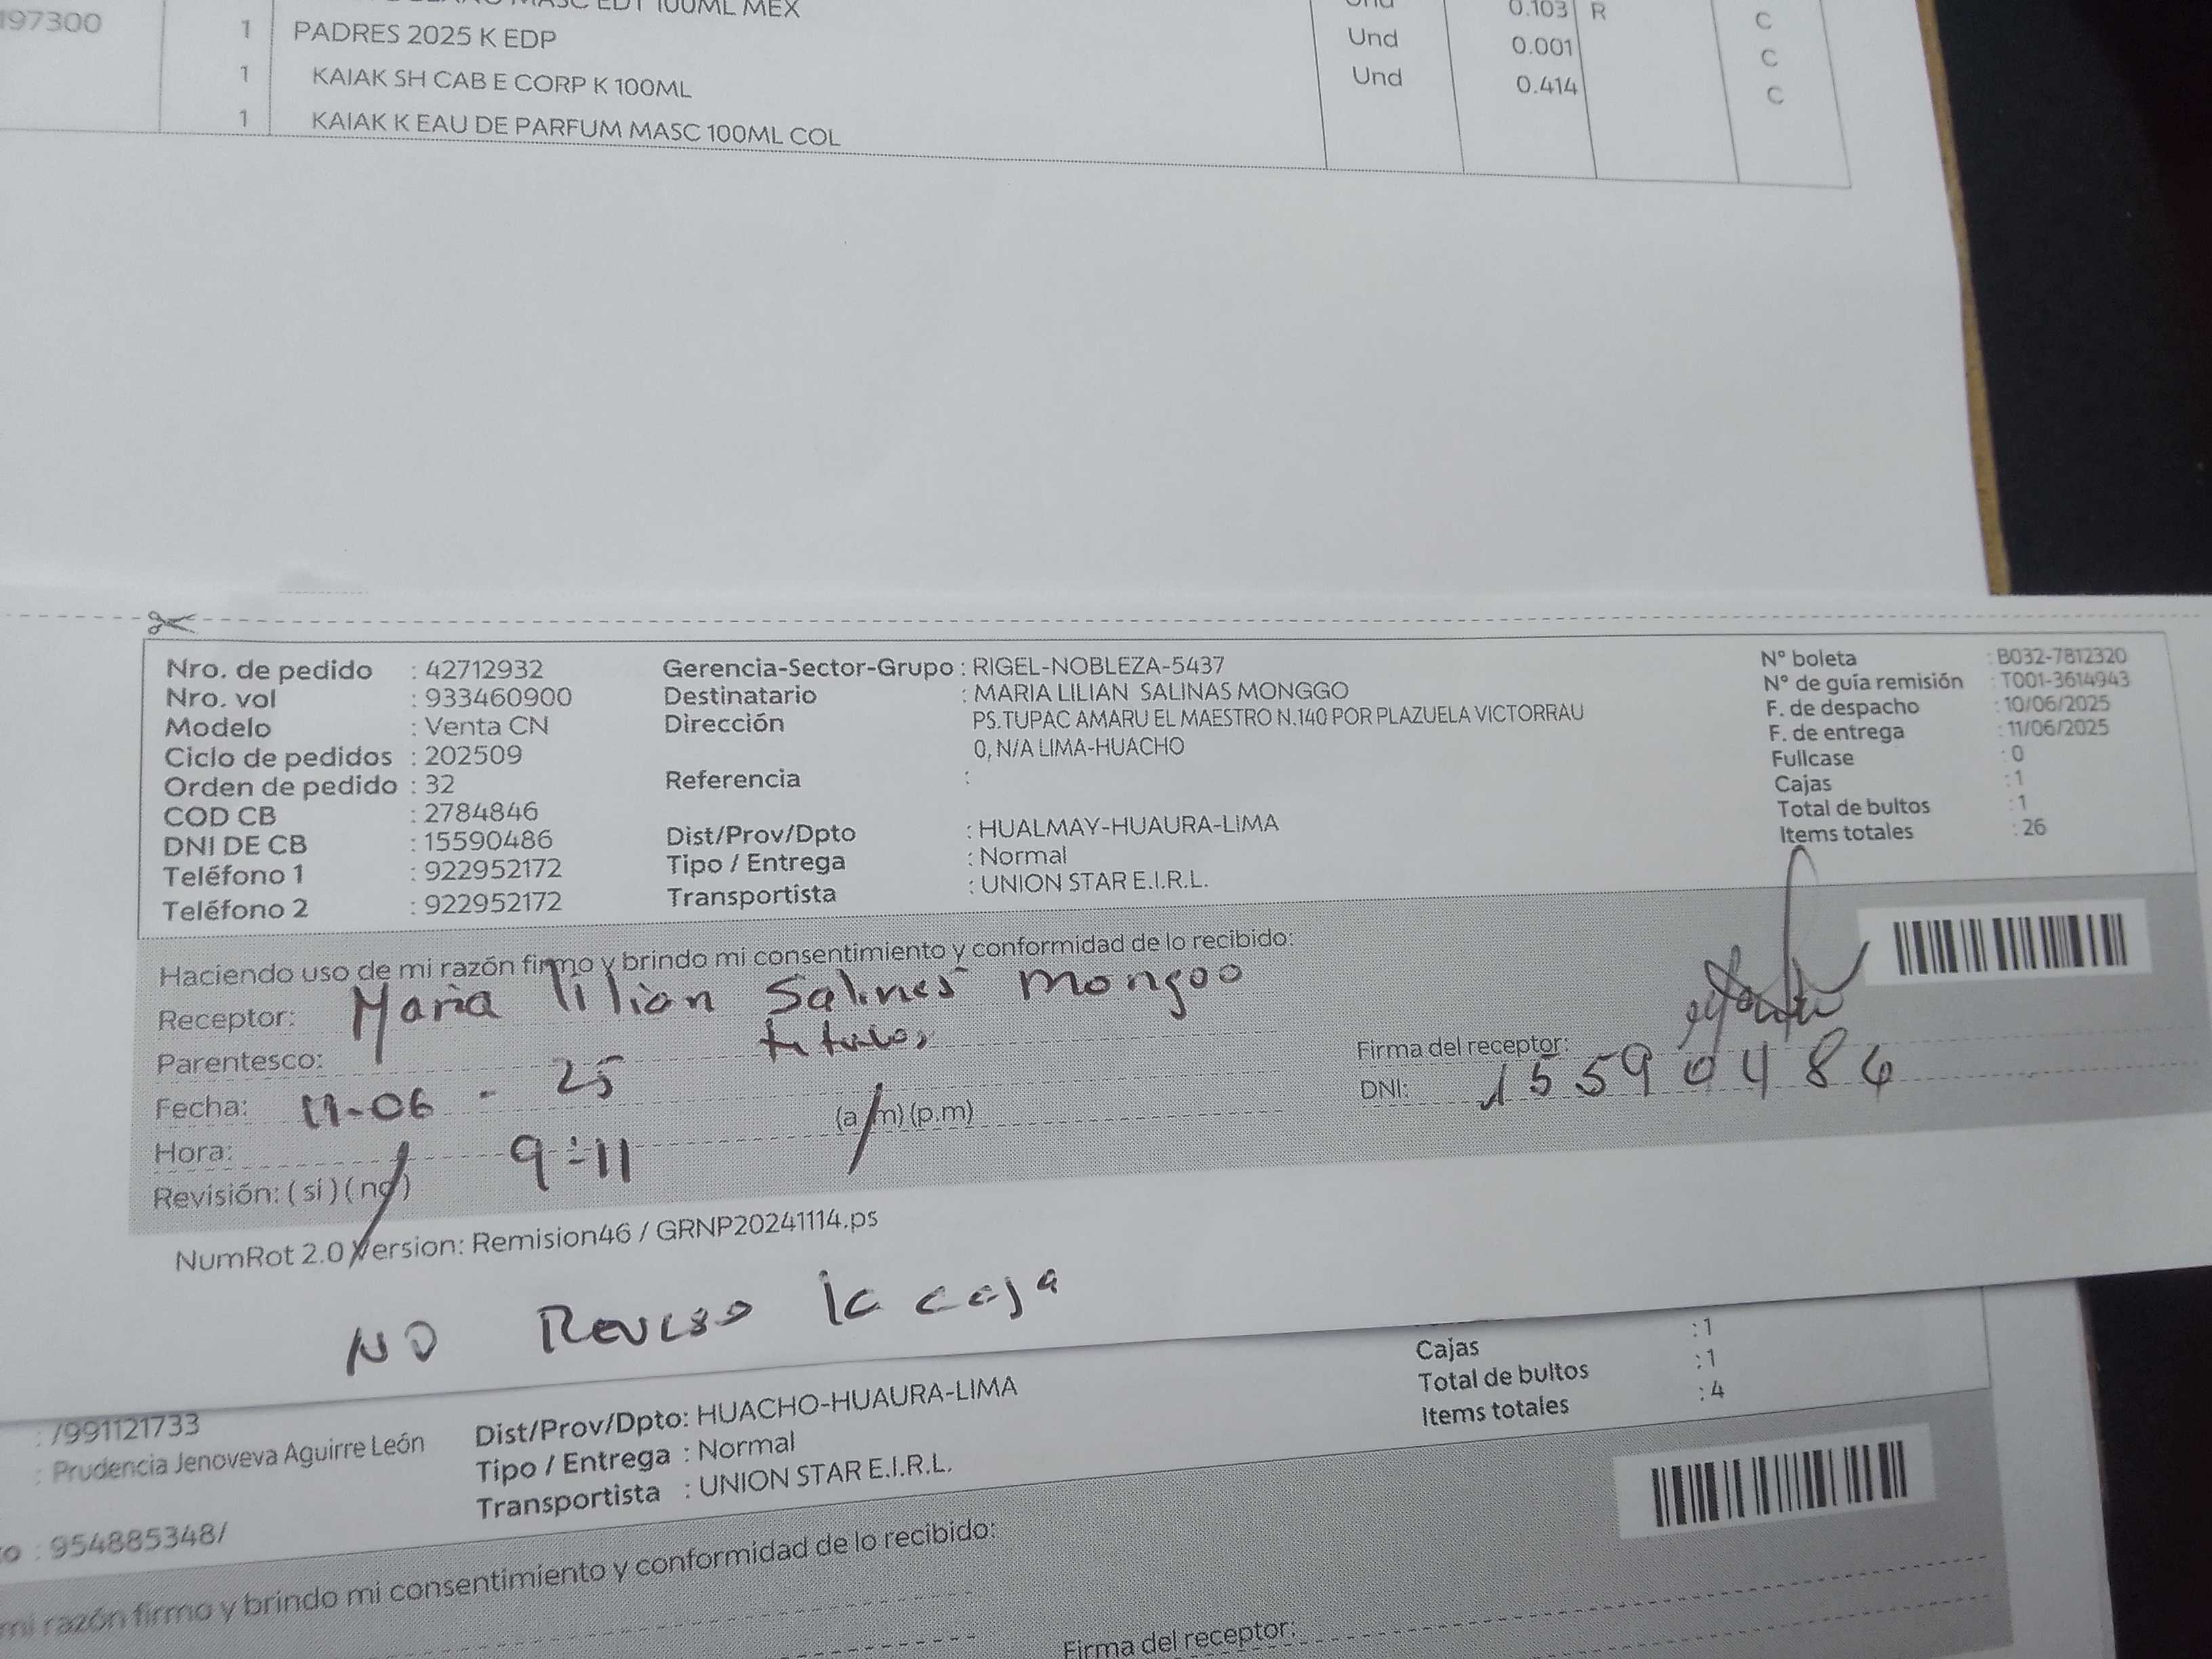 MASC EDT 100ML MEX Und 0.103 R C
197300 1 PADRES 2025 K EDP Und 0.001 C
1 KAIAK SH CAB E CORP K 100ML Und 0.414 C
1 KAIAK K EAU DE PARFUM MASC 100ML COL
Nro. de pedido : 42712932
Nro. vol : 933460900
Modelo : Venta CN
Ciclo de pedidos : 202509
Orden de pedido : 32
COD CB : 2784846
DNI DE CB : 15590486
Teléfono 1 : 922952172
Teléfono 2 : 922952172
Gerencia-Sector-Grupo : RIGEL-NOBLEZA-5437
Destinatario : MARIA LILIAN SALINAS MONGGO
Dirección PS.TUPAC AMARU EL MAESTRO N.140 POR PLAZUELA VICTORRAU
0, N/A LIMA-HUACHO
Referencia :
Dist/Prov/Dpto : HUALMAY-HUAURA-LIMA
Tipo / Entrega : Normal
Transportista : UNION STAR E.I.R.L.
N° boleta : B032-7812320
N° de guía remisión : T001-3614943
F. de despacho : 10/06/2025
F. de entrega : 11/06/2025
Fullcase : 0
Cajas : 1
Total de bultos : 1
Items totales : 26
Haciendo uso de mi razón firmo y brindo mi consentimiento y conformidad de lo recibido:
Receptor: Maria lilian Salines mongoo
Parentesco: titular
Fecha: 11-06-25
Hora: 9:11 (a.m) (p.m)
Revisión: ( si ) ( no )
Firma del receptor:
DNI: 15590486
NumRot 2.0 Version: Remision46 / GRNP20241114.ps
NO Reviso la caja
: /991121733
: Prudencia Jenoveva Aguirre León
o : 954885348/
Dist/Prov/Dpto: HUACHO-HUAURA-LIMA
Tipo / Entrega : Normal
Transportista : UNION STAR E.I.R.L.
: 1
Cajas : 1
Total de bultos
Items totales : 4
mi razón firmo y brindo mi consentimiento y conformidad de lo recibido:
Firma del receptor: